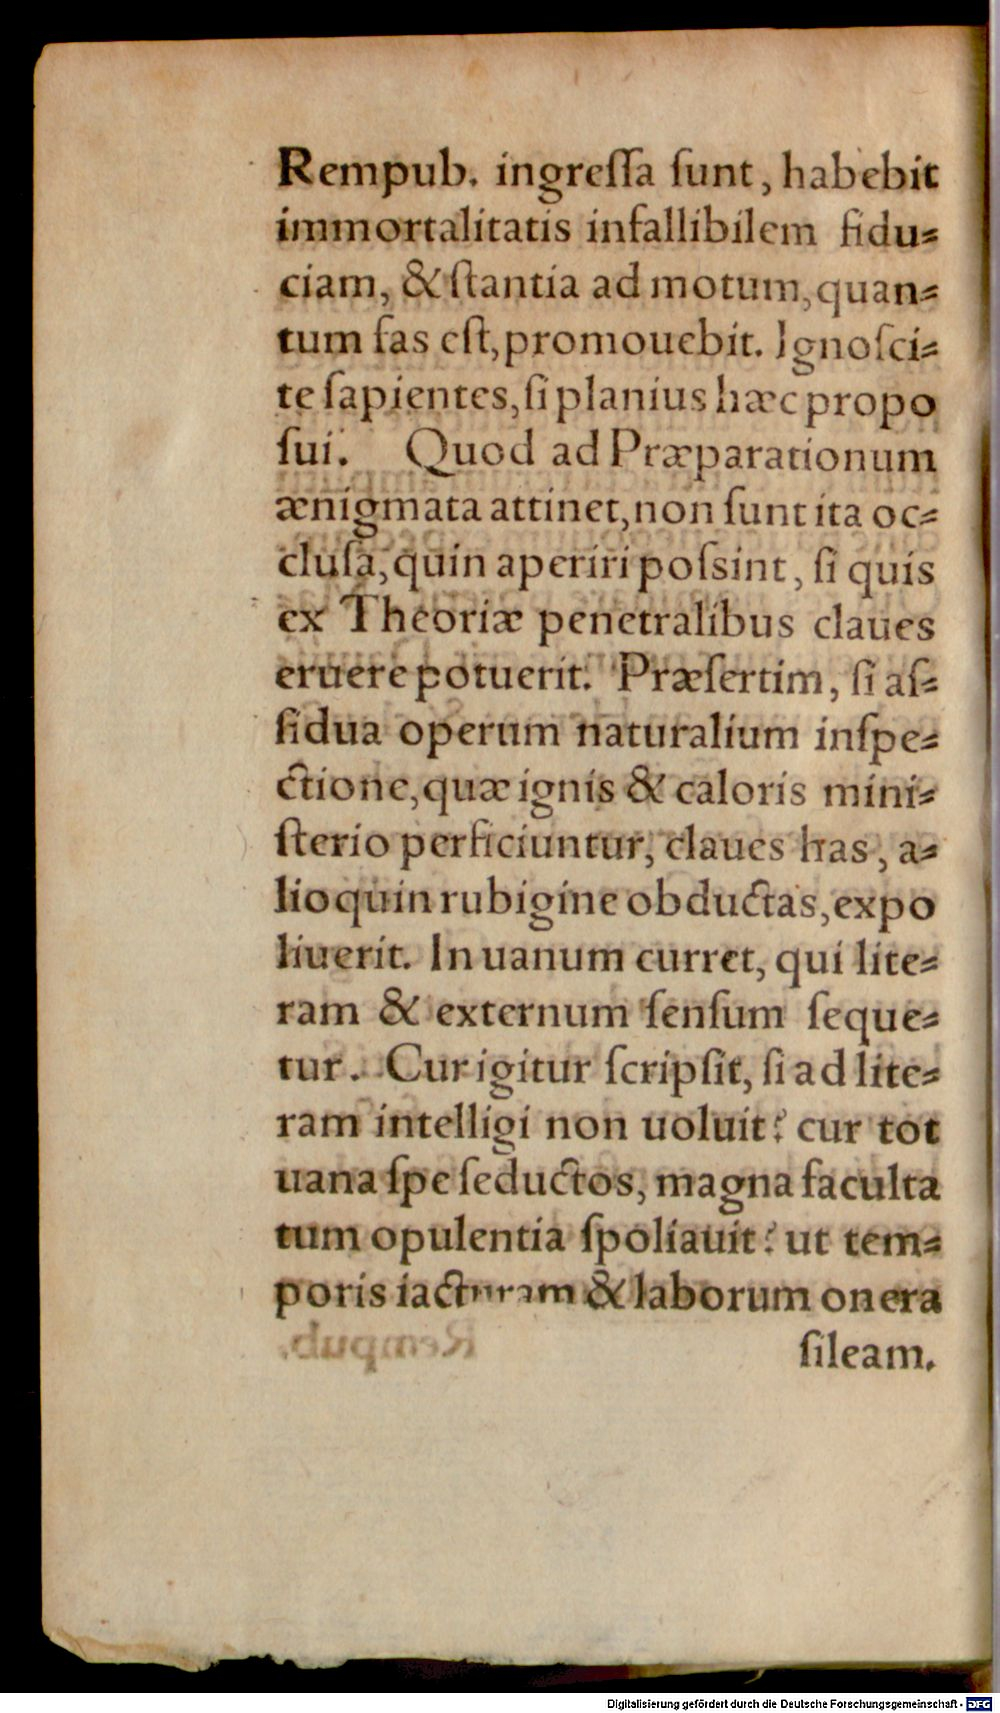 Rempub. ingreſſa ſunt, habebit
immortalitatis infallibilem fidu⸗
ciam, & ſtantia ad motum, quan⸗
tum fas eſt, promouebit. Ignoſci⸗
te ſapientes, ſi planius hæc propo
ſui. Quod ad Præparationum
ænigmata attinet, non ſunt ita oc⸗
cluſa, quin aperiri poſsint, ſi quis
ex Theoriæ penetralibus claues
eruere potuerit. Præſertim, ſi aſ⸗
ſidua operum naturalium inſpe⸗
ctione, quæ ignis & caloris mini⸗
ſterio perficiuntur, claues has, a⸗
lioquin rubigine obductas, expo
liuerit. In uanum curret, qui lite⸗
ram & externum ſenſum ſeque⸗
tur. Cur igitur ſcripſit, ſi ad lite⸗
ram intelligi non uoluit? cur tot
uana ſpe ſeductos, magna faculta
tum opulentia ſpoliauit? ut tem⸗
poris iacturam & laborum onera
ſileam.
Digitalisierung gefördert durch die Deutsche Forschungsgemeinschaft - DFG